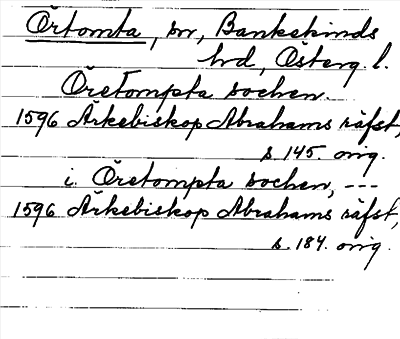 Örtomta, sn, Bankekinds
hrd, Österg. l.
Öretompta sochen.
1596 Ärkebiskop Abrahams räfst,
s. 145. orig.
i Öretompta sochen, ---
1596 Ärkebiskop Abrahams räfst,
s. 184. orig.